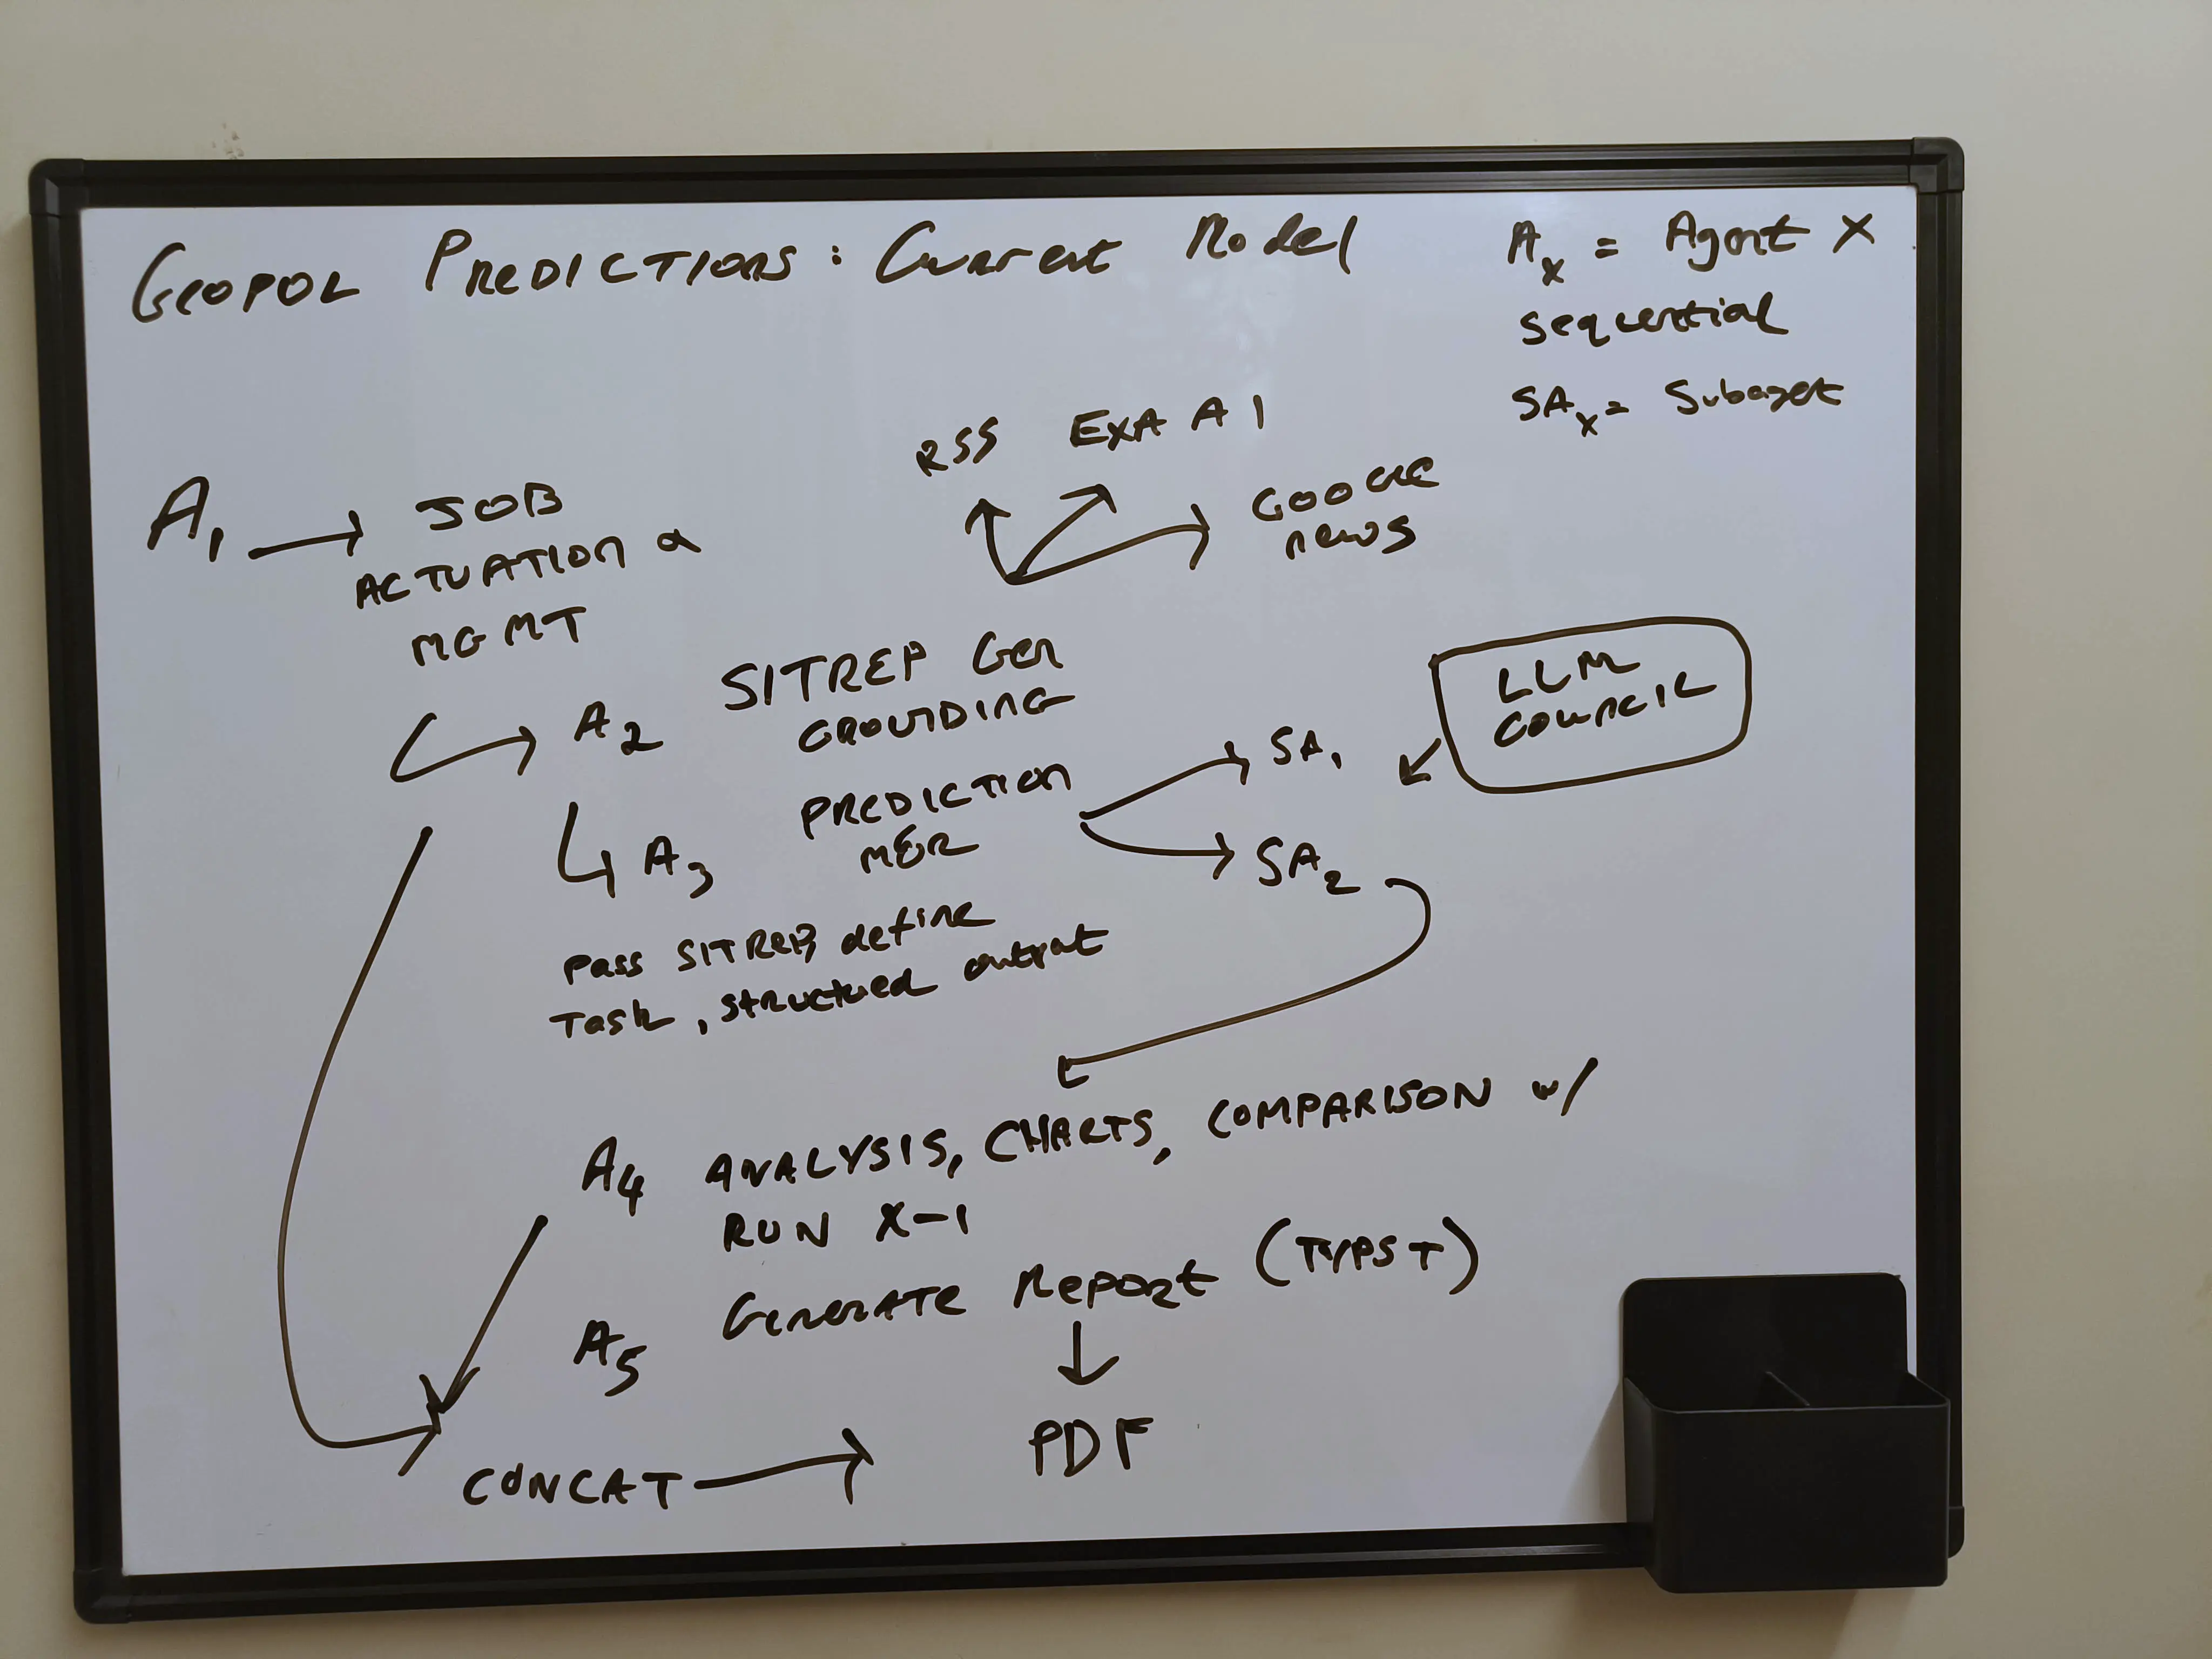 GEOPOL PREDICTIONS : Current Model
Ax = Agent X
sequential
SAx = Subaget
RSS EXA AI
GOOGLE
news
A1 → JOB
ACTUATION &
MGMT
SITREP Gen
GROUNDING
A2
LLM
COUNCIL
PREDICTION
MGR
SA1
A3
SA2
Pass SITREP, define
Task, structured output
A4 ANALYSIS, CHARTS, COMPARISON w/
RUN X-1
A5 Generate Report (TYPST)
PDF
CONCAT